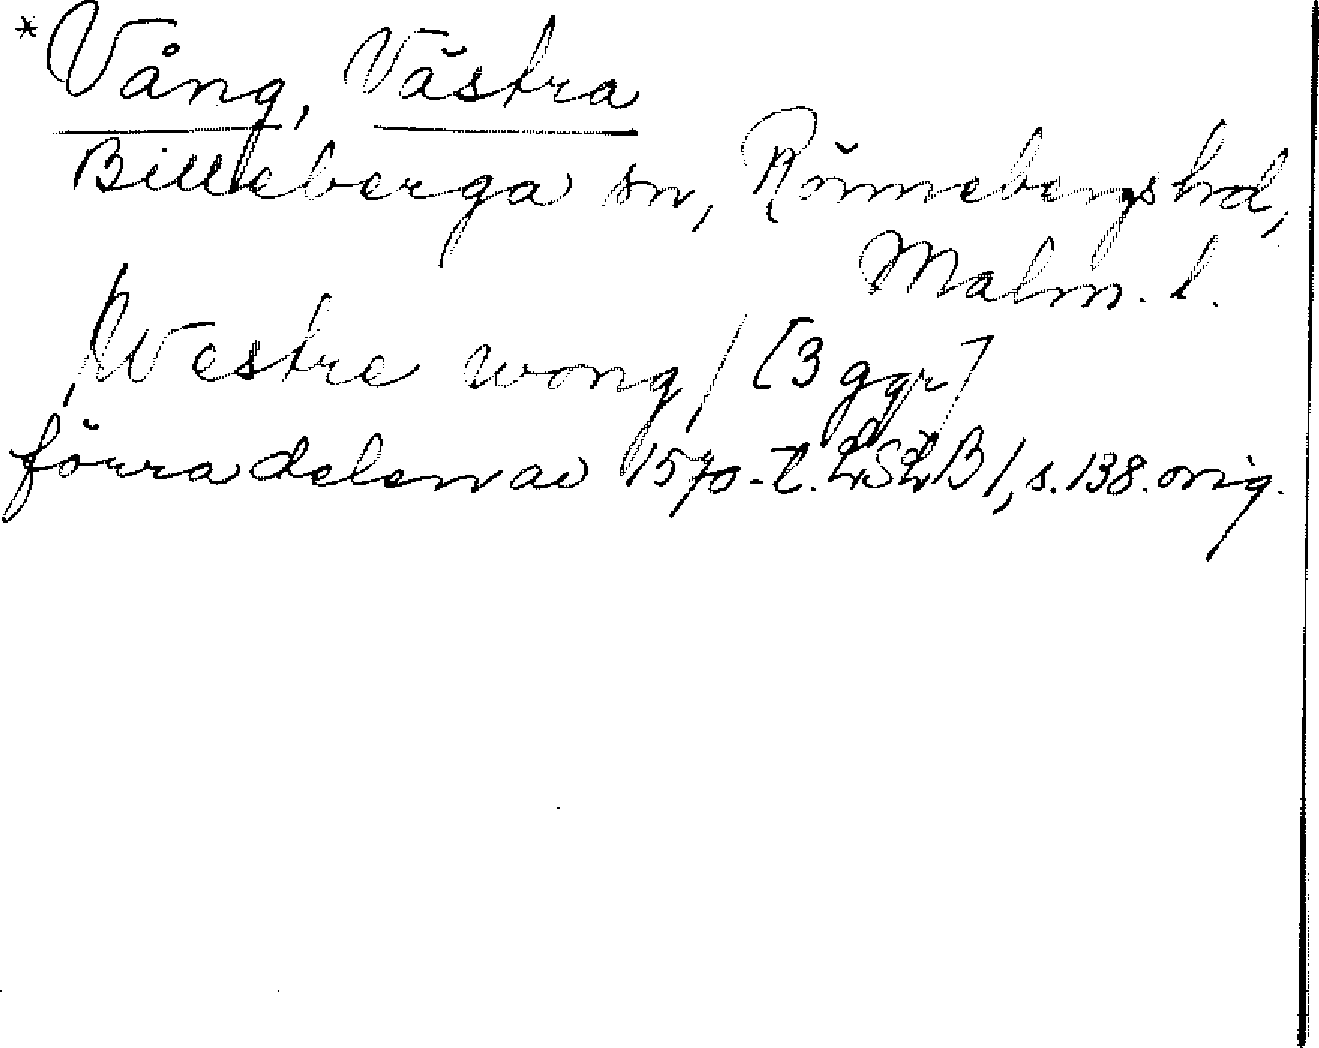 *Vång, Västra
Billeberga sn, Rönnebergs hd,
Malm. l.
/Westre wong/ [3 ggr]
förra delen av 1570-t. LSLB 1, s. 138. orig.